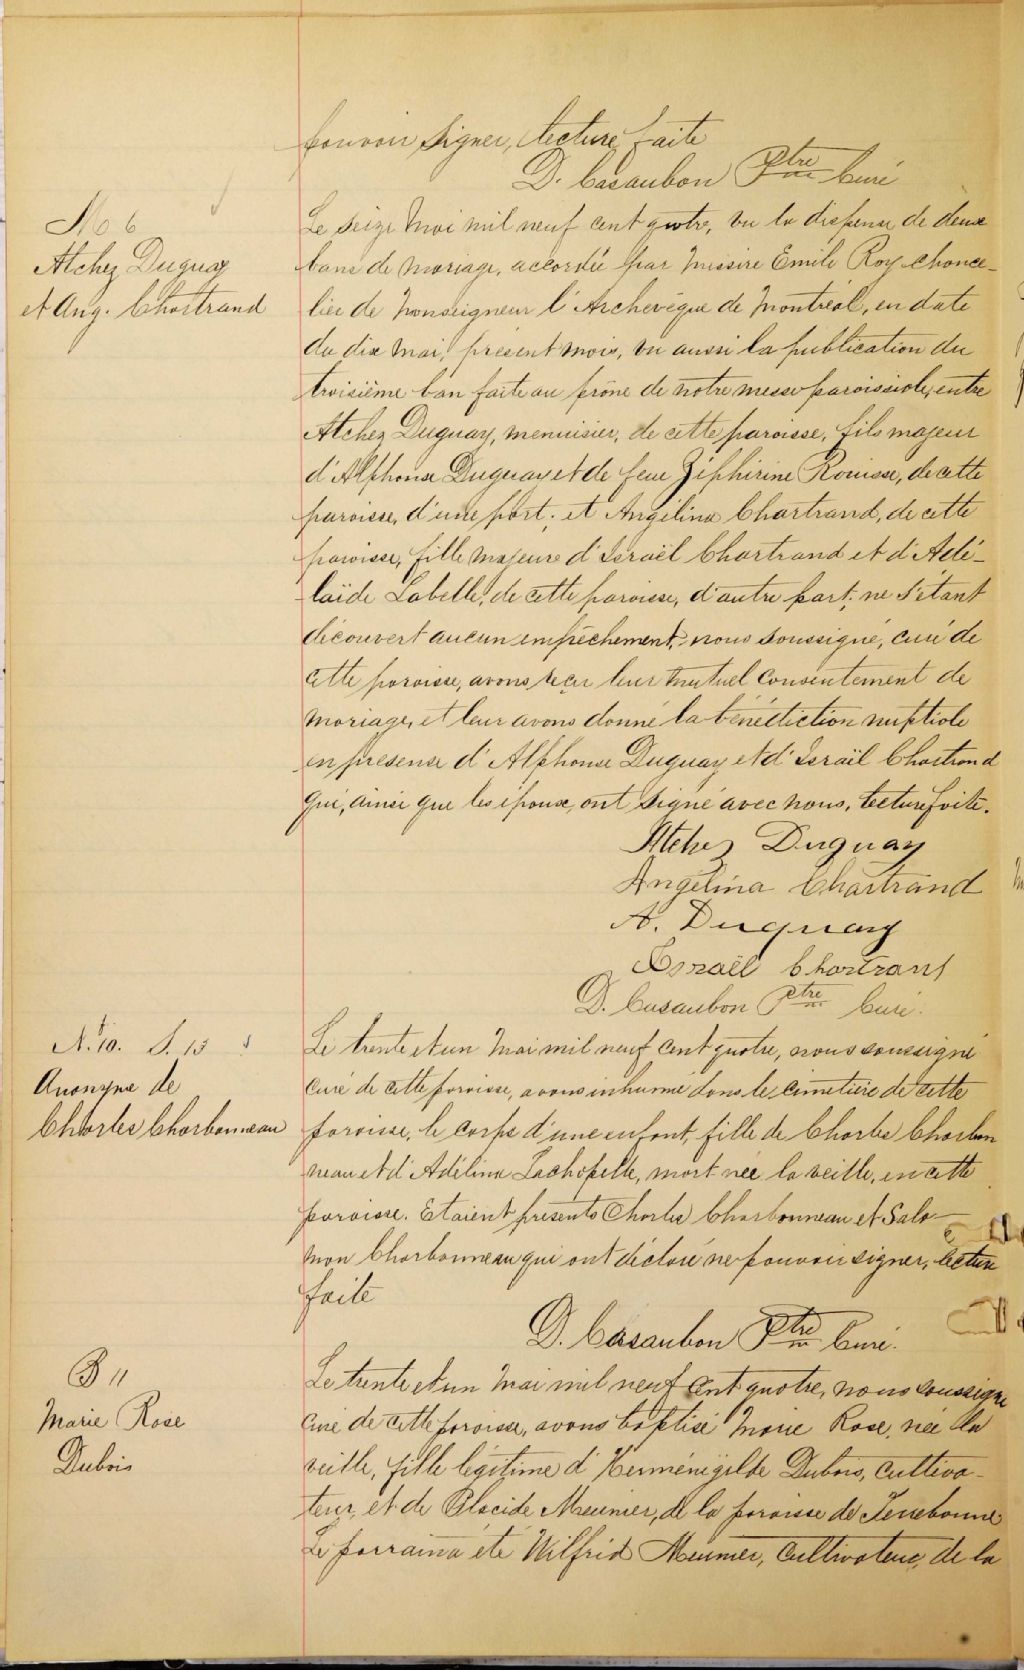 pouvoir signer, lecture faite
D. Casaubon Ptre Curé
M 6
Atchez Duguay
et Ang. Chartrand
Le seize Mai mil neuf cent quatre, vu la dispense de deux
bans de mariage, accordée par Messire Emile Roy chance-
lier de Monseigneur l'Archevêque de Montréal, en date
du dix Mai, présent mois, vu aussi la publication du
troisième ban faite au prône de notre messe paroissiale, entre
Atchez Duguay, menuisier, de cette paroisse, fils majeur
d'Alphonse Duguay et de feue Ziphirine Rouisse, de cette
paroisse, d'une part; et Angélina Chartrand, de cette
paroisse, fille majeure d'Israël Chartrand et d'Adé-
laïde Labelle, de cette paroisse, d'autre part; ne s'étant
découvert aucun empêchement, nous soussigné, curé de
cette paroisse, avons reçu leur mutuel consentement de
mariage, et leur avons donné la bénédiction nuptiale
en présence d'Alphonse Duguay et d'Israël Chartrand
qui, ainsi que les époux, ont signé avec nous, lecture faite.
Atchez Duguay
Angélina Chartrand
A. Duguay
Israël Chartrand
D. Casaubon Ptre Curé.
N. 10. S. 13
Anonyme de
Charles Charbonneau
Le trente et un Mai mil neuf cent quatre, nous soussigné
curé de cette paroisse, avons inhumé dans le cimetière de cette
paroisse, le corps d'une enfant, fille de Charles Charbon
neau et d'Adélina Lachapelle, mort née la veille, en cette
paroisse. Etaient présents Charles Charbonneau et Salo-
mon Charbonneau qui ont déclaré ne pouvoir signer, lecture
faite
D. Casaubon Ptre Curé.
B 11
Marie Rose
Dubois
Le trente et un Mai mil neuf cent quatre, nous soussigné
curé de cette paroisse, avons baptisé Marie Rose, née la
veille, fille légitime d'Herménégilde Dubois, cultiva-
teur, et de Placide Meunier, de la paroisse de Terrebonne
Le parrain a été Wilfrid Meunier, cultivateur, de la